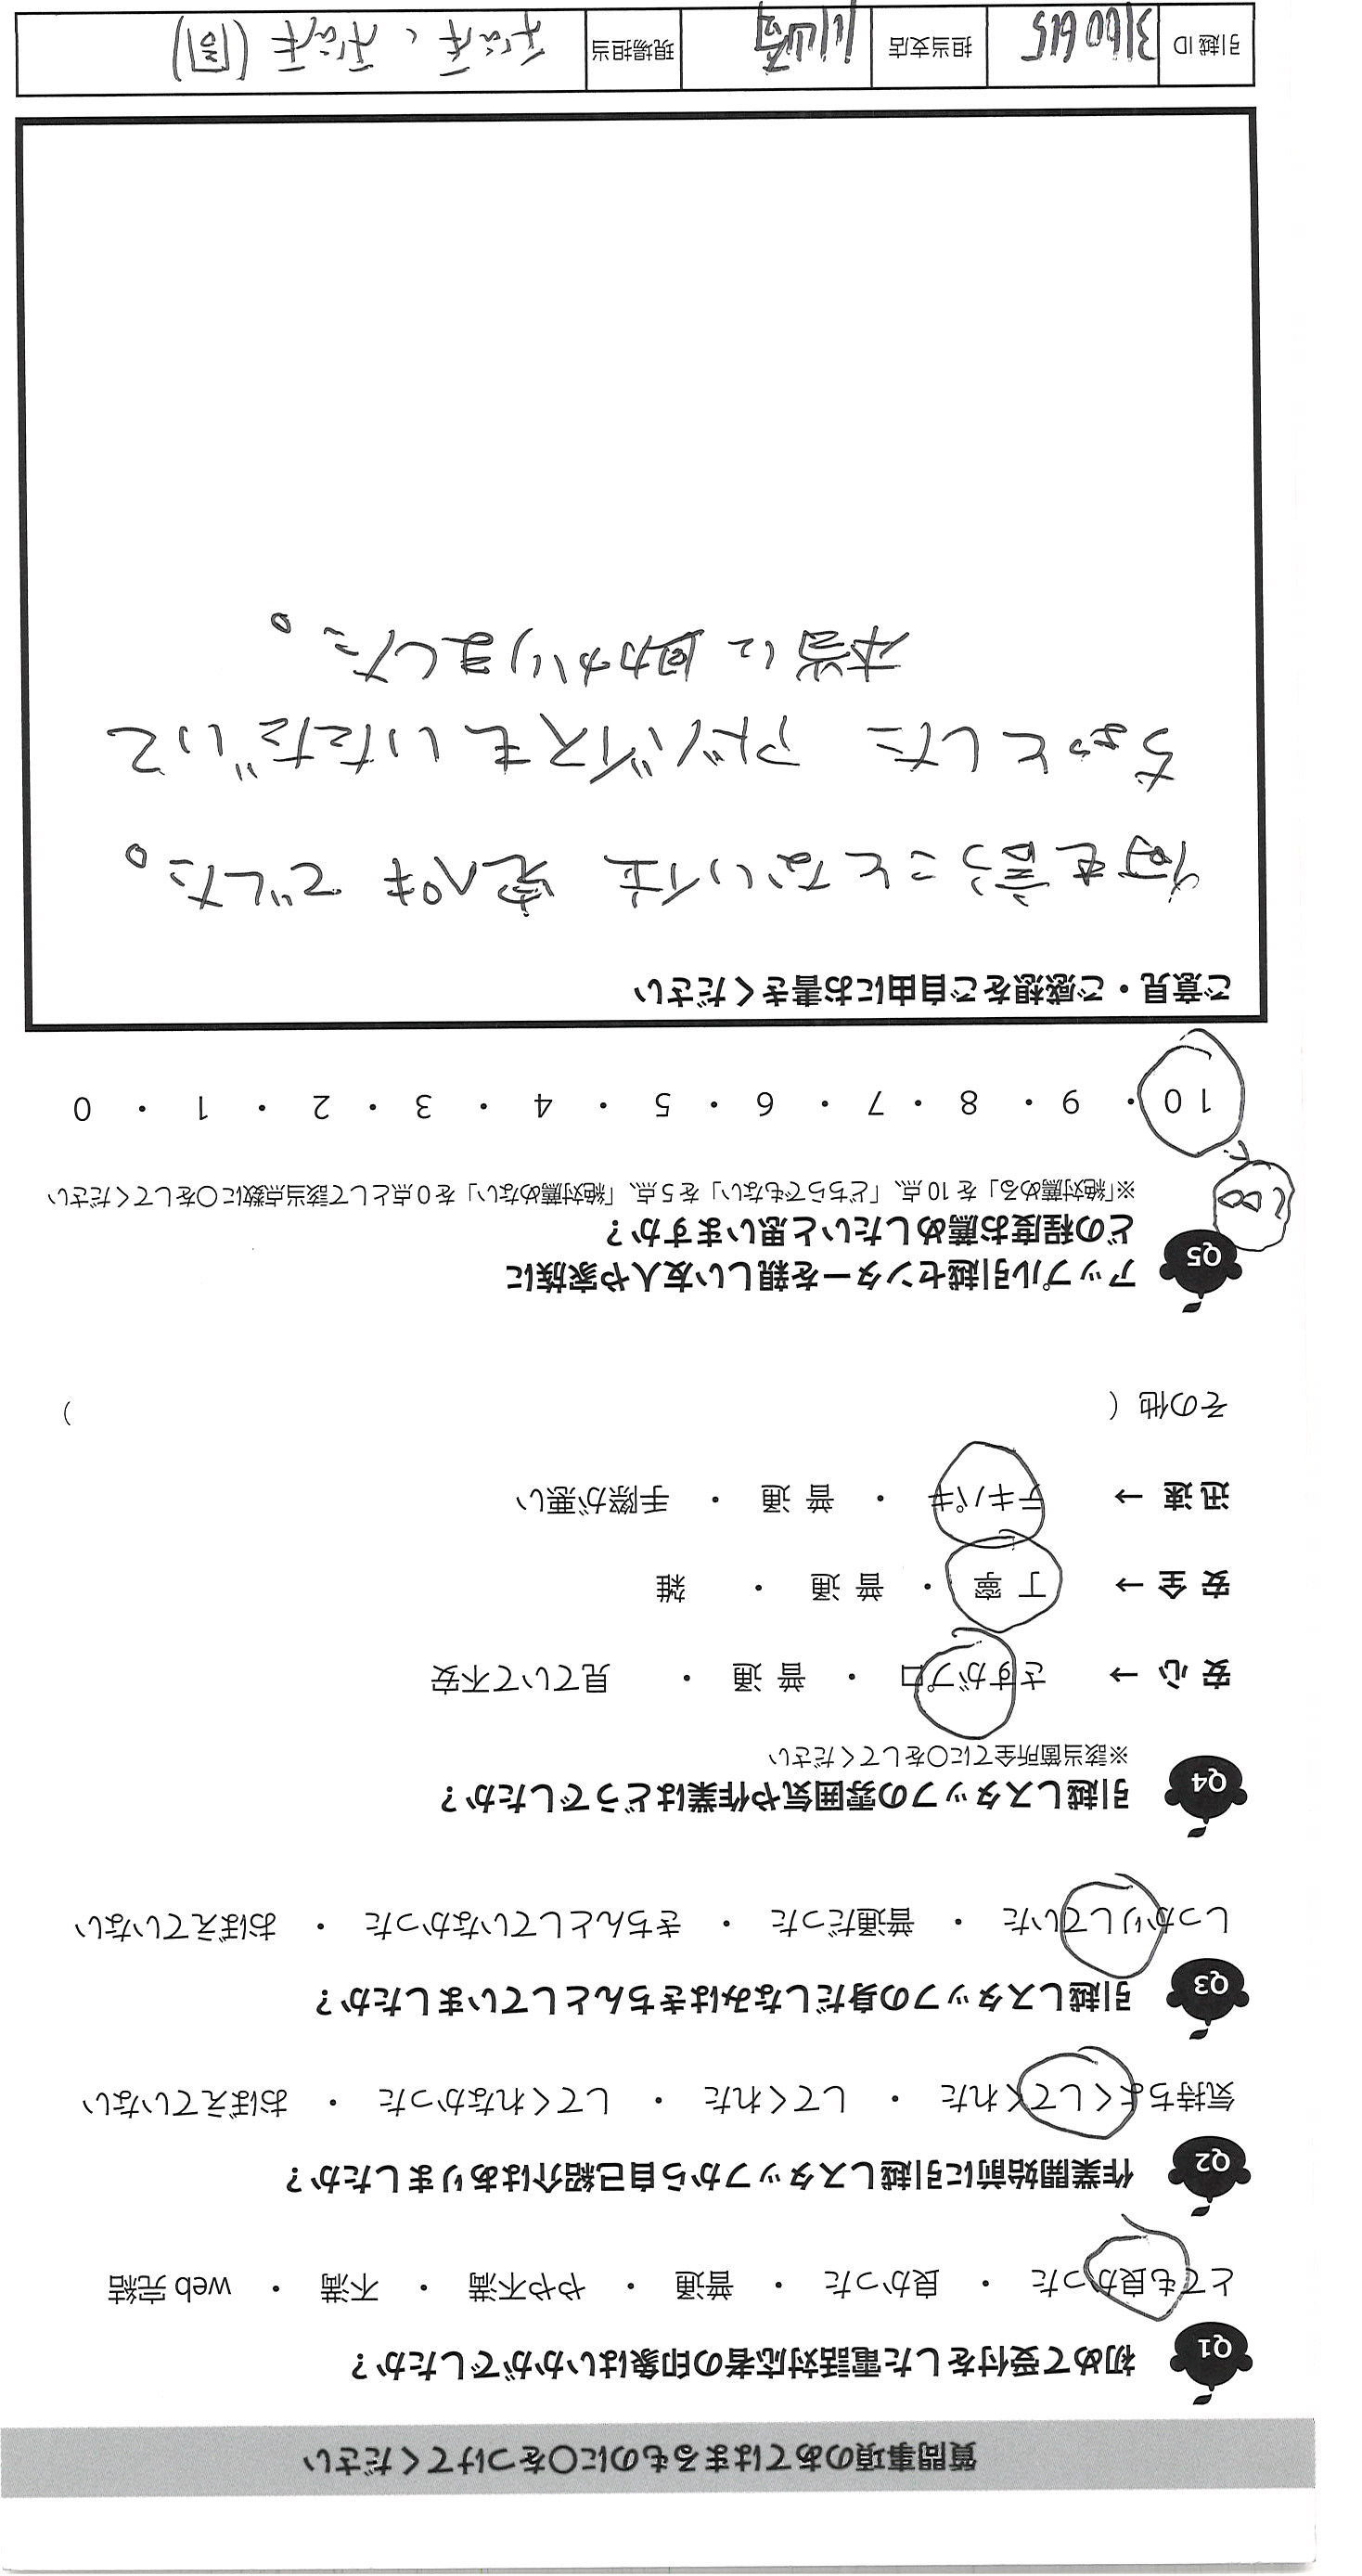 質問事項のあてはまるものに○をつけてください
Q1 初めて受付をした電話対応者の印象はいかがでしたか？
とても良かった ・ 良かった ・ 普通 ・ やや不満 ・ 不満 ・ web 完結
Q2 作業開始前に引越しスタッフから自己紹介はありましたか？
気持ちよくしてくれた ・ してくれた ・ してくれなかった ・ おぼえていない
Q3 引越しスタッフの身だしなみはきちんとしていましたか？
しっかりしていた ・ 普通だった ・ きちんとしていなかった ・ おぼえていない
Q4 引越しスタッフの雰囲気や作業はどうでしたか？
※該当箇所全てに○をしてください
安 心 → さすがプロ ・ 普 通 ・ 見ていて不安
安 全 → 丁 寧 ・ 普 通 ・ 雑
迅 速 → テキパキ ・ 普 通 ・ 手際が悪い
その他（ ）
Q5 アップル引越センターを親しい友人や家族に
どの程度お薦めしたいと思いますか？
※「絶対薦める」を 10 点、「どちらでもない」を 5 点、「絶対薦めない」を 0 点として該当点数に○をしてください
100
10 ・ 9 ・ 8 ・ 7 ・ 6 ・ 5 ・ 4 ・ 3 ・ 2 ・ 1 ・ 0
ご意見・ご感想をご自由にお書きください
何も言うことない位 完ペキ でした。
ちょっとした アドバイスもいただいて
本当に助かりました。
引越 ID 3160615 担当支店 川崎 現場担当